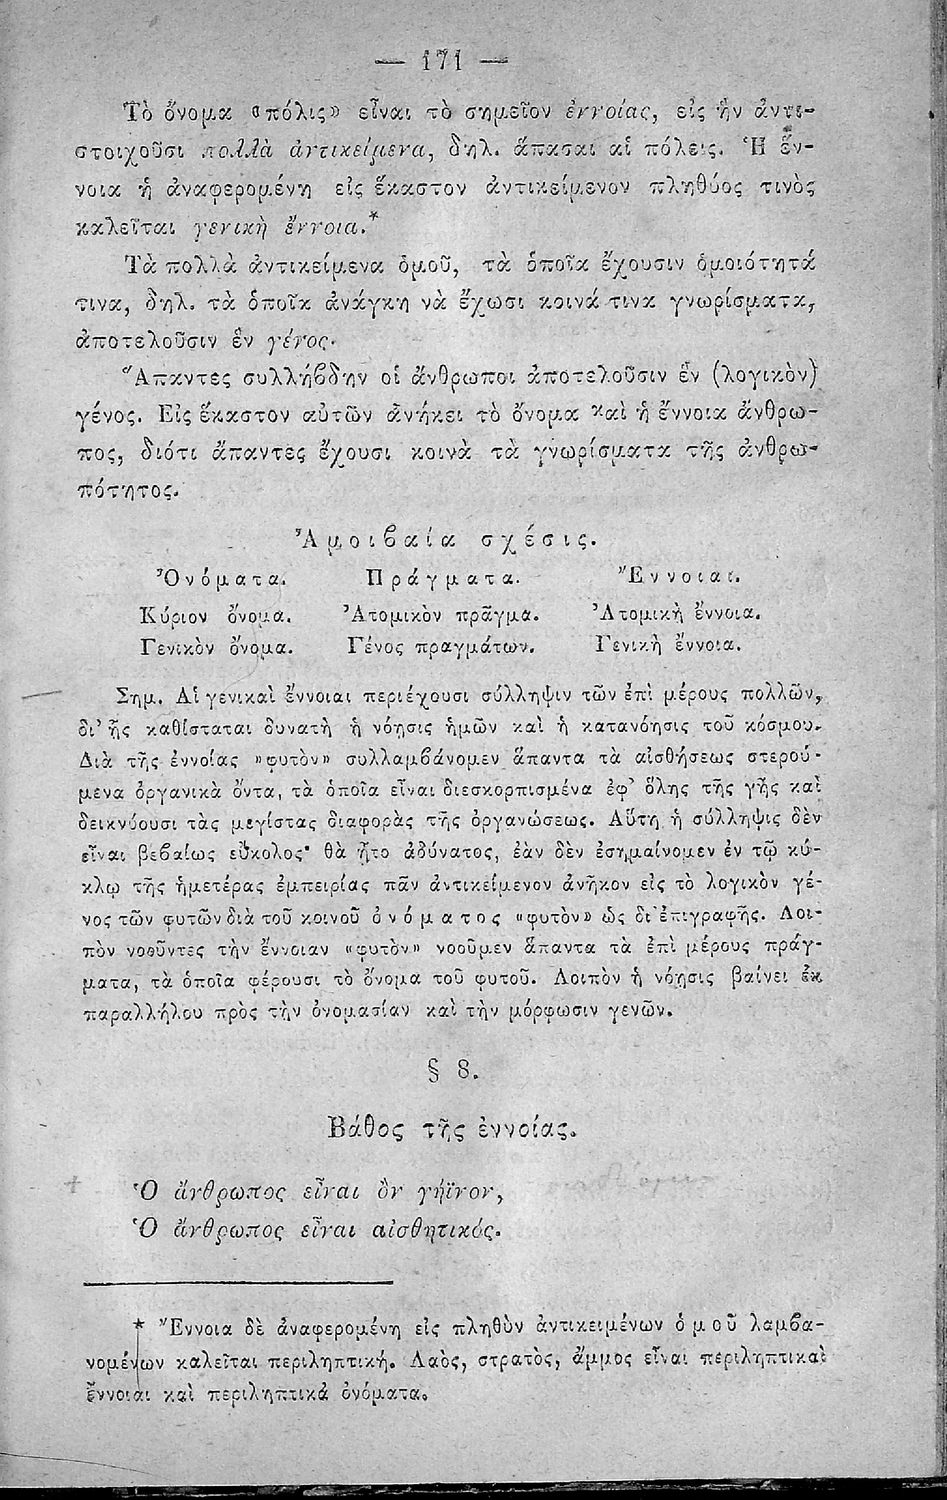 — 171 —
Τὸ ὄνομα «πόλις» εἶναι τὸ σημεῖον ἐννοίας, εἰς ἣν ἀντι-
στοιχοῦσι πολλὰ ἀντικείμενα, δηλ. ἅπασαι αἱ πόλεις. Ἡ ἔν-
νοια ἡ ἀναφερομένη εἰς ἕκαστον ἀντικείμενον πληθύος τινὸς
καλεῖται γενικὴ ἔννοια.*
Τὰ πολλὰ ἀντικείμενα ὁμοῦ, τὰ ὁποῖα ἔχουσιν ὁμοιότητά
τινα, δηλ. τὰ ὁποῖα ἀνάγκη νὰ ἔχωσι κοινά τινα γνωρίσματα,
ἀποτελοῦσιν ἓν γένος.
Ἅπαντες συλλήβδην οἱ ἄνθρωποι ἀποτελοῦσιν ἓν (λογικὸν)
γένος. Εἰς ἕκαστον αὐτῶν ἀνήκει τὸ ὄνομα καὶ ἡ ἔννοια ἄνθρω-
πος, διότι ἅπαντες ἔχουσι κοινὰ τὰ γνωρίσματα τῆς ἀνθρω-
πότητος.
Ἀμοιβαία σχέσις.
Ὀνόματα. Πράγματα. Ἔννοιαι.
Κύριον ὄνομα. Ἀτομικὸν πρᾶγμα. Ἀτομικὴ ἔννοια.
Γενικὸν ὄνομα. Γένος πραγμάτων. Γενικὴ ἔννοια.
Σημ. Αἱ γενικαὶ ἔννοιαι περιέχουσι σύλληψιν τῶν ἐπὶ μέρους πολλῶν,
δι' ἧς καθίσταται δυνατὴ ἡ νόησις ἡμῶν καὶ ἡ κατανόησις τοῦ κόσμου.
Διὰ τῆς ἐννοίας »φυτὸν» συλλαμβάνομεν ἅπαντα τὰ αἰσθήσεως στερού-
μενα ὀργανικὰ ὄντα, τὰ ὁποῖα εἶναι διεσκορπισμένα ἐφ' ὅλης τῆς γῆς καὶ
δεικνύουσι τὰς μεγίστας διαφορὰς τῆς ὀργανώσεως. Αὕτη ἡ σύλληψις δὲν
εἶναι βεβαίως εὔκολος· θὰ ἦτο ἀδύνατος, ἐὰν δὲν ἐσημαίνομεν ἐν τῷ κύ-
κλῳ τῆς ἡμετέρας ἐμπειρίας πᾶν ἀντικείμενον ἀνῆκον εἰς τὸ λογικὸν γέ-
νος τῶν φυτῶν διὰ τοῦ κοινοῦ ὀνόματος «φυτὸν» ὡς δι' ἐπιγραφῆς. Λοι-
πὸν νοοῦντες τὴν ἔννοιαν «φυτὸν» νοοῦμεν ἅπαντα τὰ ἐπὶ μέρους πράγ-
ματα, τὰ ὁποῖα φέρουσι τὸ ὄνομα τοῦ φυτοῦ. Λοιπὸν ἡ νόησις βαίνει ἐκ
παραλλήλου πρὸς τὴν ὀνομασίαν καὶ τὴν μόρφωσιν γενῶν.
§ 8.
Βάθος τῆς ἐννοίας.
Ὁ ἄνθρωπος εἶναι ὂν γήϊνον,
Ὁ ἄνθρωπος εἶναι αἰσθητικός.
* Ἔννοια δὲ ἀναφερομένη εἰς πληθὺν ἀντικειμένων ὁμοῦ λαμβα-
νομένων καλεῖται περιληπτική. Λαὸς, στρατὸς, ἄμμος εἶναι περιληπτικαὶ
ἔννοιαι καὶ περιληπτικὰ ὀνόματα.